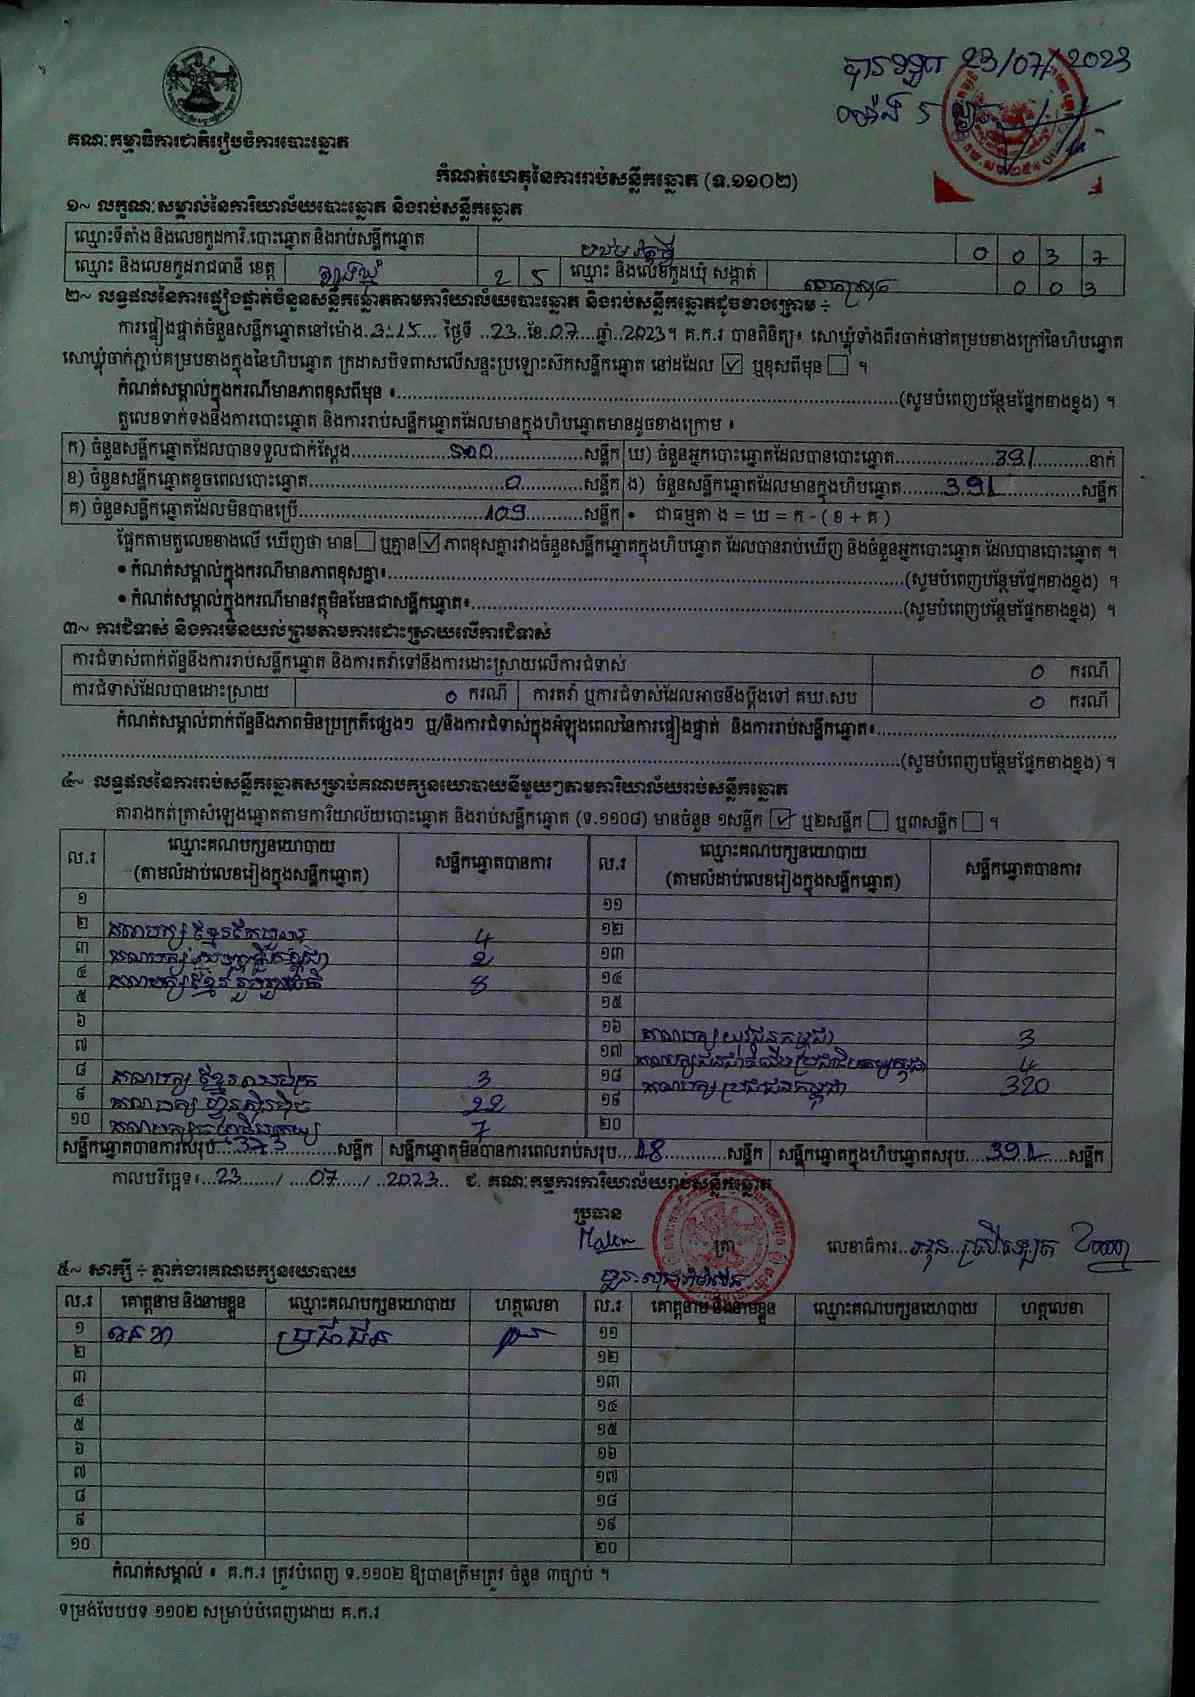 បានទទួល 23/07/2023
ម៉ោង 5
គណៈកម្មាធិការជាតិរៀបចំការបោះឆ្នោត
កំណត់ហេតុនៃការរាប់សន្លឹកឆ្នោត (ទ.១១០២)
១~ លក្ខណៈសម្គាល់នៃការិយាល័យបោះឆ្នោត និងរាប់សន្លឹកឆ្នោត
ឈ្មោះទីតាំង និងលេខកូដការិ.បោះឆ្នោត និងរាប់សន្លឹកឆ្នោត 0 0 3 7
ឈ្មោះ និងលេខកូដរាជធានី ខេត្ត ត្បូងឃ្មុំ 2 5 ឈ្មោះ និងលេខកូដឃុំ សង្កាត់ 0 0 3
២~ លទ្ធផលនៃការផ្ទៀងផ្ទាត់ចំនួនសន្លឹកឆ្នោតតាមការិយាល័យបោះឆ្នោត និងរាប់សន្លឹកឆ្នោតដូចខាងក្រោម ÷
ការផ្ទៀងផ្ទាត់ចំនួនសន្លឹកឆ្នោតនៅម៉ោង.3:15.... ថ្ងៃទី ..23..ខែ.07....ឆ្នាំ..2023។ គ.ក.រ បានពិនិត្យ៖ សោឃ្លុំទាំងពីរចាក់នៅគម្របខាងក្រៅនៃហិបឆ្នោត
សោឃ្លុំចាក់ភ្ជាប់គម្របខាងក្នុងនៃហិបឆ្នោត ក្រដាសបិទពាសលើសន្ទះប្រឡោះស៊កសន្លឹកឆ្នោត នៅដដែល ☑ ឬខុសពីមុន ☐ ។
កំណត់សម្គាល់ក្នុងករណីមានភាពខុសពីមុន ៖......(សូមបំពេញបន្ថែមផ្នែកខាងខ្នង) ។
តួលេខទាក់ទងនឹងការបោះឆ្នោត និងការរាប់សន្លឹកឆ្នោតដែលមានក្នុងហិបឆ្នោតមានដូចខាងក្រោម ៖
ក) ចំនួនសន្លឹកឆ្នោតដែលបានទទួលជាក់ស្តែង......500......សន្លឹក ឃ) ចំនួនអ្នកបោះឆ្នោតដែលបានបោះឆ្នោត......391......នាក់
ខ) ចំនួនសន្លឹកឆ្នោតខូចពេលបោះឆ្នោត......0......សន្លឹក ង) ចំនួនសន្លឹកឆ្នោតដែលមានក្នុងហិបឆ្នោត......391......សន្លឹក
គ) ចំនួនសន្លឹកឆ្នោតដែលមិនបានប្រើ......109......សន្លឹក • ជាធម្មតា ង = ឃ = ក - ( ខ + គ )
ផ្អែកតាមតួលេខខាងលើ ឃើញថា មាន ☐ ឬគ្មាន ☑ ភាពខុសគ្នារវាងចំនួនសន្លឹកឆ្នោតក្នុងហិបឆ្នោត ដែលបានរាប់ឃើញ និងចំនួនអ្នកបោះឆ្នោត ដែលបានបោះឆ្នោត ។
• កំណត់សម្គាល់ក្នុងករណីមានភាពខុសគ្នា៖......(សូមបំពេញបន្ថែមផ្នែកខាងខ្នង) ។
• កំណត់សម្គាល់ក្នុងករណីមានវត្ថុមិនមែនជាសន្លឹកឆ្នោត៖......(សូមបំពេញបន្ថែមផ្នែកខាងខ្នង) ។
៣~ ការជំទាស់ និងការមិនយល់ព្រមតាមការដោះស្រាយលើការជំទាស់
ការជំទាស់ពាក់ព័ន្ធនឹងការរាប់សន្លឹកឆ្នោត និងការតវ៉ាទៅនឹងការដោះស្រាយលើការជំទាស់ 0 ករណី
ការជំទាស់ដែលបានដោះស្រាយ 0 ករណី ការតវ៉ា ឬការជំទាស់ដែលអាចនឹងប្តឹងទៅ គឃ.សប 0 ករណី
កំណត់សម្គាល់ពាក់ព័ន្ធនឹងភាពមិនប្រក្រតីផ្សេងៗ ឬ/និងការជំទាស់ក្នុងអំឡុងពេលនៃការផ្ទៀងផ្ទាត់ និងការរាប់សន្លឹកឆ្នោត៖......
......(សូមបំពេញបន្ថែមផ្នែកខាងខ្នង) ។
៤~ លទ្ធផលនៃការរាប់សន្លឹកឆ្នោតសម្រាប់គណបក្សនយោបាយនីមួយៗតាមការិយាល័យរាប់សន្លឹកឆ្នោត
តារាងកត់ត្រាសំឡេងឆ្នោតតាមការិយាល័យបោះឆ្នោត និងរាប់សន្លឹកឆ្នោត (ទ.១១០៨) មានចំនួន ១សន្លឹក ☑ ឬ២សន្លឹក ☐ ឬ៣សន្លឹក ☐ ។
ល.រ ឈ្មោះគណបក្សនយោបាយ (តាមលំដាប់លេខរៀងក្នុងសន្លឹកឆ្នោត) សន្លឹកឆ្នោតបានការ ល.រ ឈ្មោះគណបក្សនយោបាយ (តាមលំដាប់លេខរៀងក្នុងសន្លឹកឆ្នោត) សន្លឹកឆ្នោតបានការ
១ ១១
២ គណបក្ស ខ្មែរ 4 ១២
៣ គណបក្ស 2 ១៣
៤ គណបក្ស ខ្មែរ រួបរួមជាតិ 8 ១៤
៥ ១៥
៦ ១៦ គណបក្ស យុវជនកម្ពុជា 3
៧ ១៧ គណបក្ស 4
៨ គណបក្ស ខ្មែរ 3 ១៨ គណបក្ស ប្រជាជនកម្ពុជា 320
៩ គណបក្ស ហ៊្វុនស៊ិនប៉ិច 22 ១៩
១០ គណបក្ស 7 ២០
សន្លឹកឆ្នោតបានការសរុប...373......សន្លឹក សន្លឹកឆ្នោតមិនបានការពេលរាប់សរុប...18......សន្លឹក សន្លឹកឆ្នោតក្នុងហិបឆ្នោតសរុប...391...សន្លឹក
កាលបរិច្ឆេទ៖...23....../ ...07...../ ..2023.. ជ. គណៈកម្មការការិយាល័យរាប់សន្លឹកឆ្នោត
ប្រធាន
ត្រា លេខាធិការ..
៥~ សាក្សី ÷ ភ្នាក់ងារគណបក្សនយោបាយ
ល.រ គោត្តនាម និងនាមខ្លួន ឈ្មោះគណបក្សនយោបាយ ហត្ថលេខា ល.រ គោត្តនាម និងនាមខ្លួន ឈ្មោះគណបក្សនយោបាយ ហត្ថលេខា
១ ១១
២ ១២
៣ ១៣
៤ ១៤
៥ ១៥
៦ ១៦
៧ ១៧
៨ ១៨
៩ ១៩
១០ ២០
កំណត់សម្គាល់ ៖ គ.ក.រ ត្រូវបំពេញ ទ.១១០២ ឱ្យបានត្រឹមត្រូវ ចំនួន ៣ច្បាប់ ។
ទម្រង់បែបបទ ១១០២ សម្រាប់បំពេញដោយ គ.ក.រ